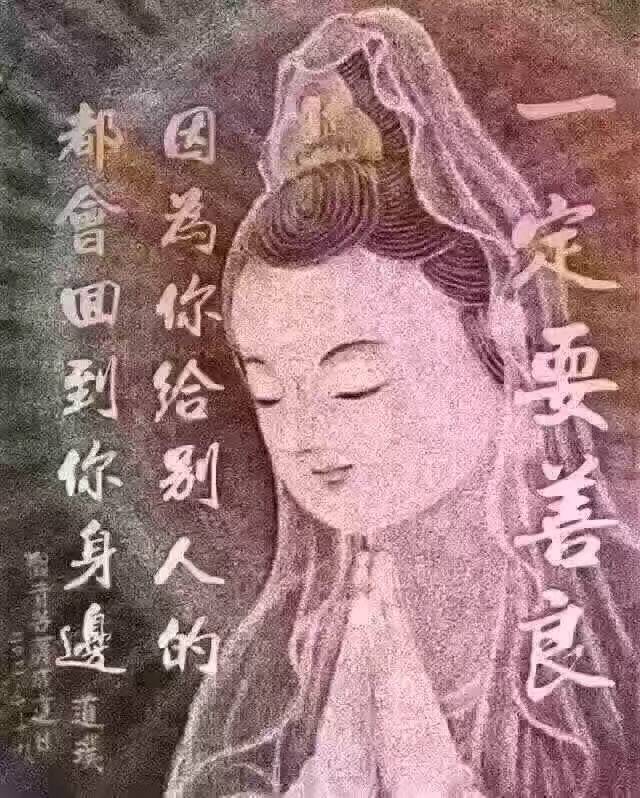 一定要善良
因為你給別人的
都會回到你身邊
道璞